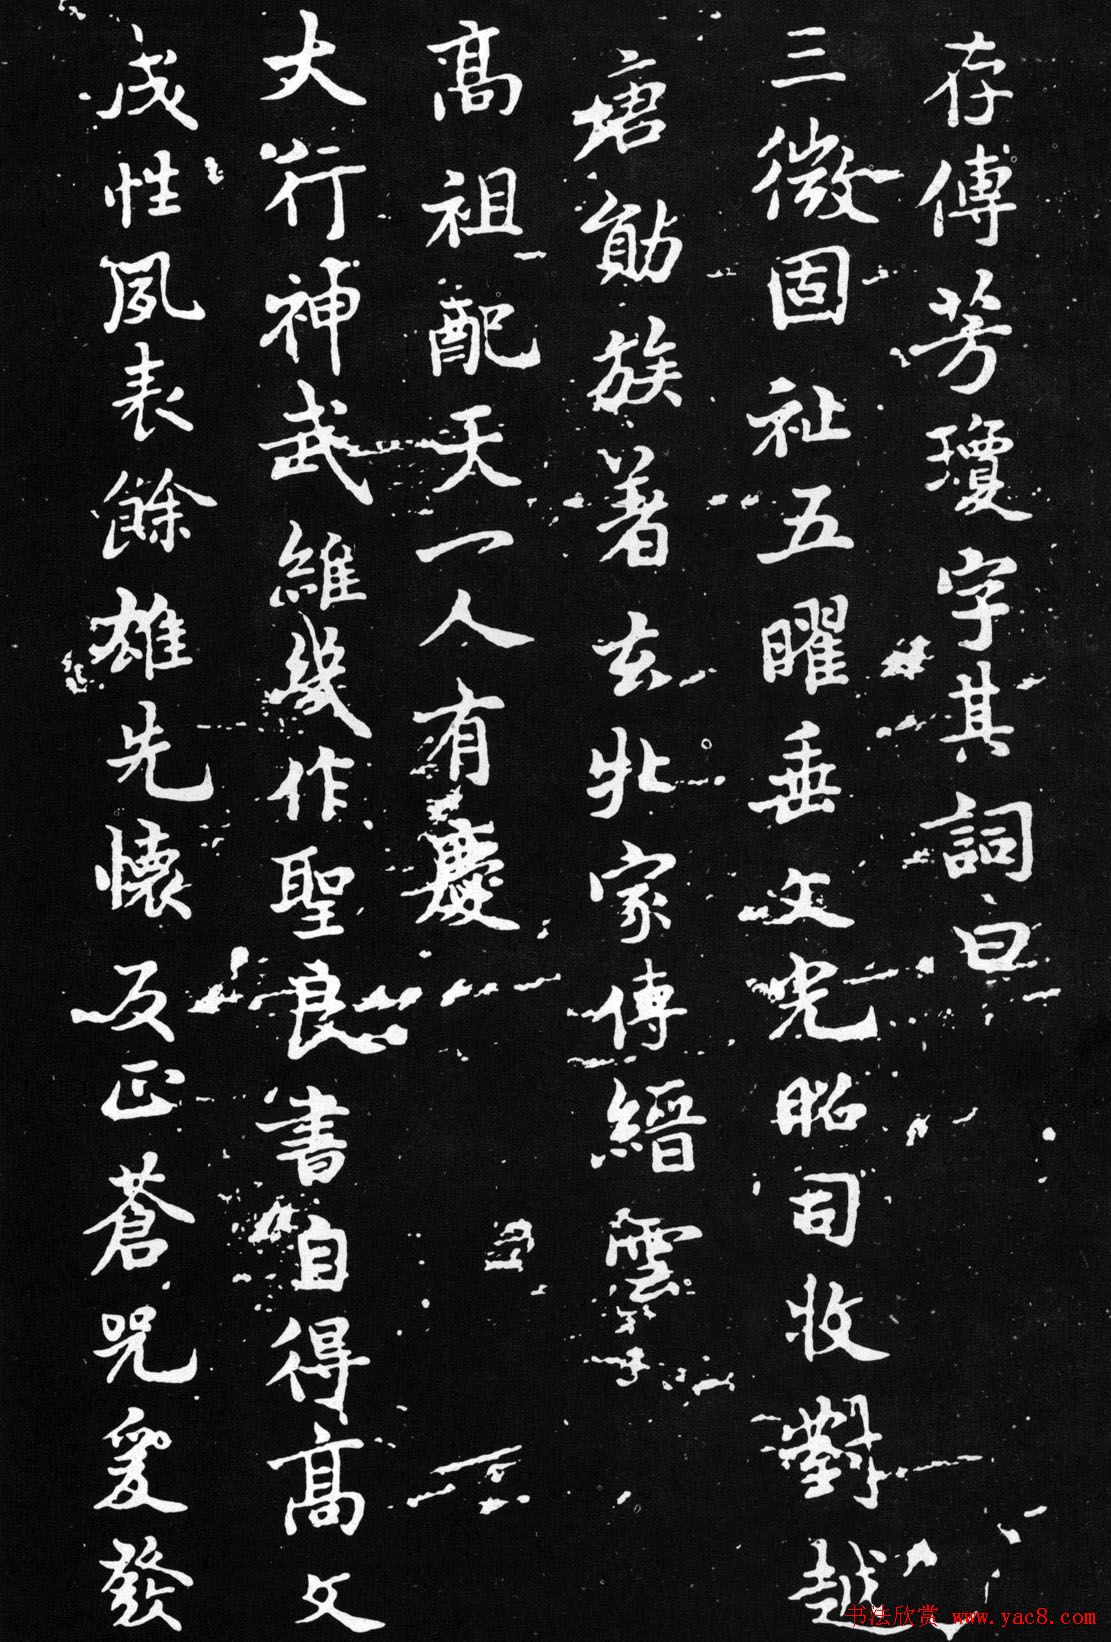 存傳芳瓊字其詞曰
三微固祉五曜垂文光昭司牧對越
唐勛族著玄牝家傳縉雲
高祖配天一人有慶
大行神武維幾作聖良書自得高文
成性夙表餘雄先懷反正蒼兕爰發
书法欣赏 www.yac8.com